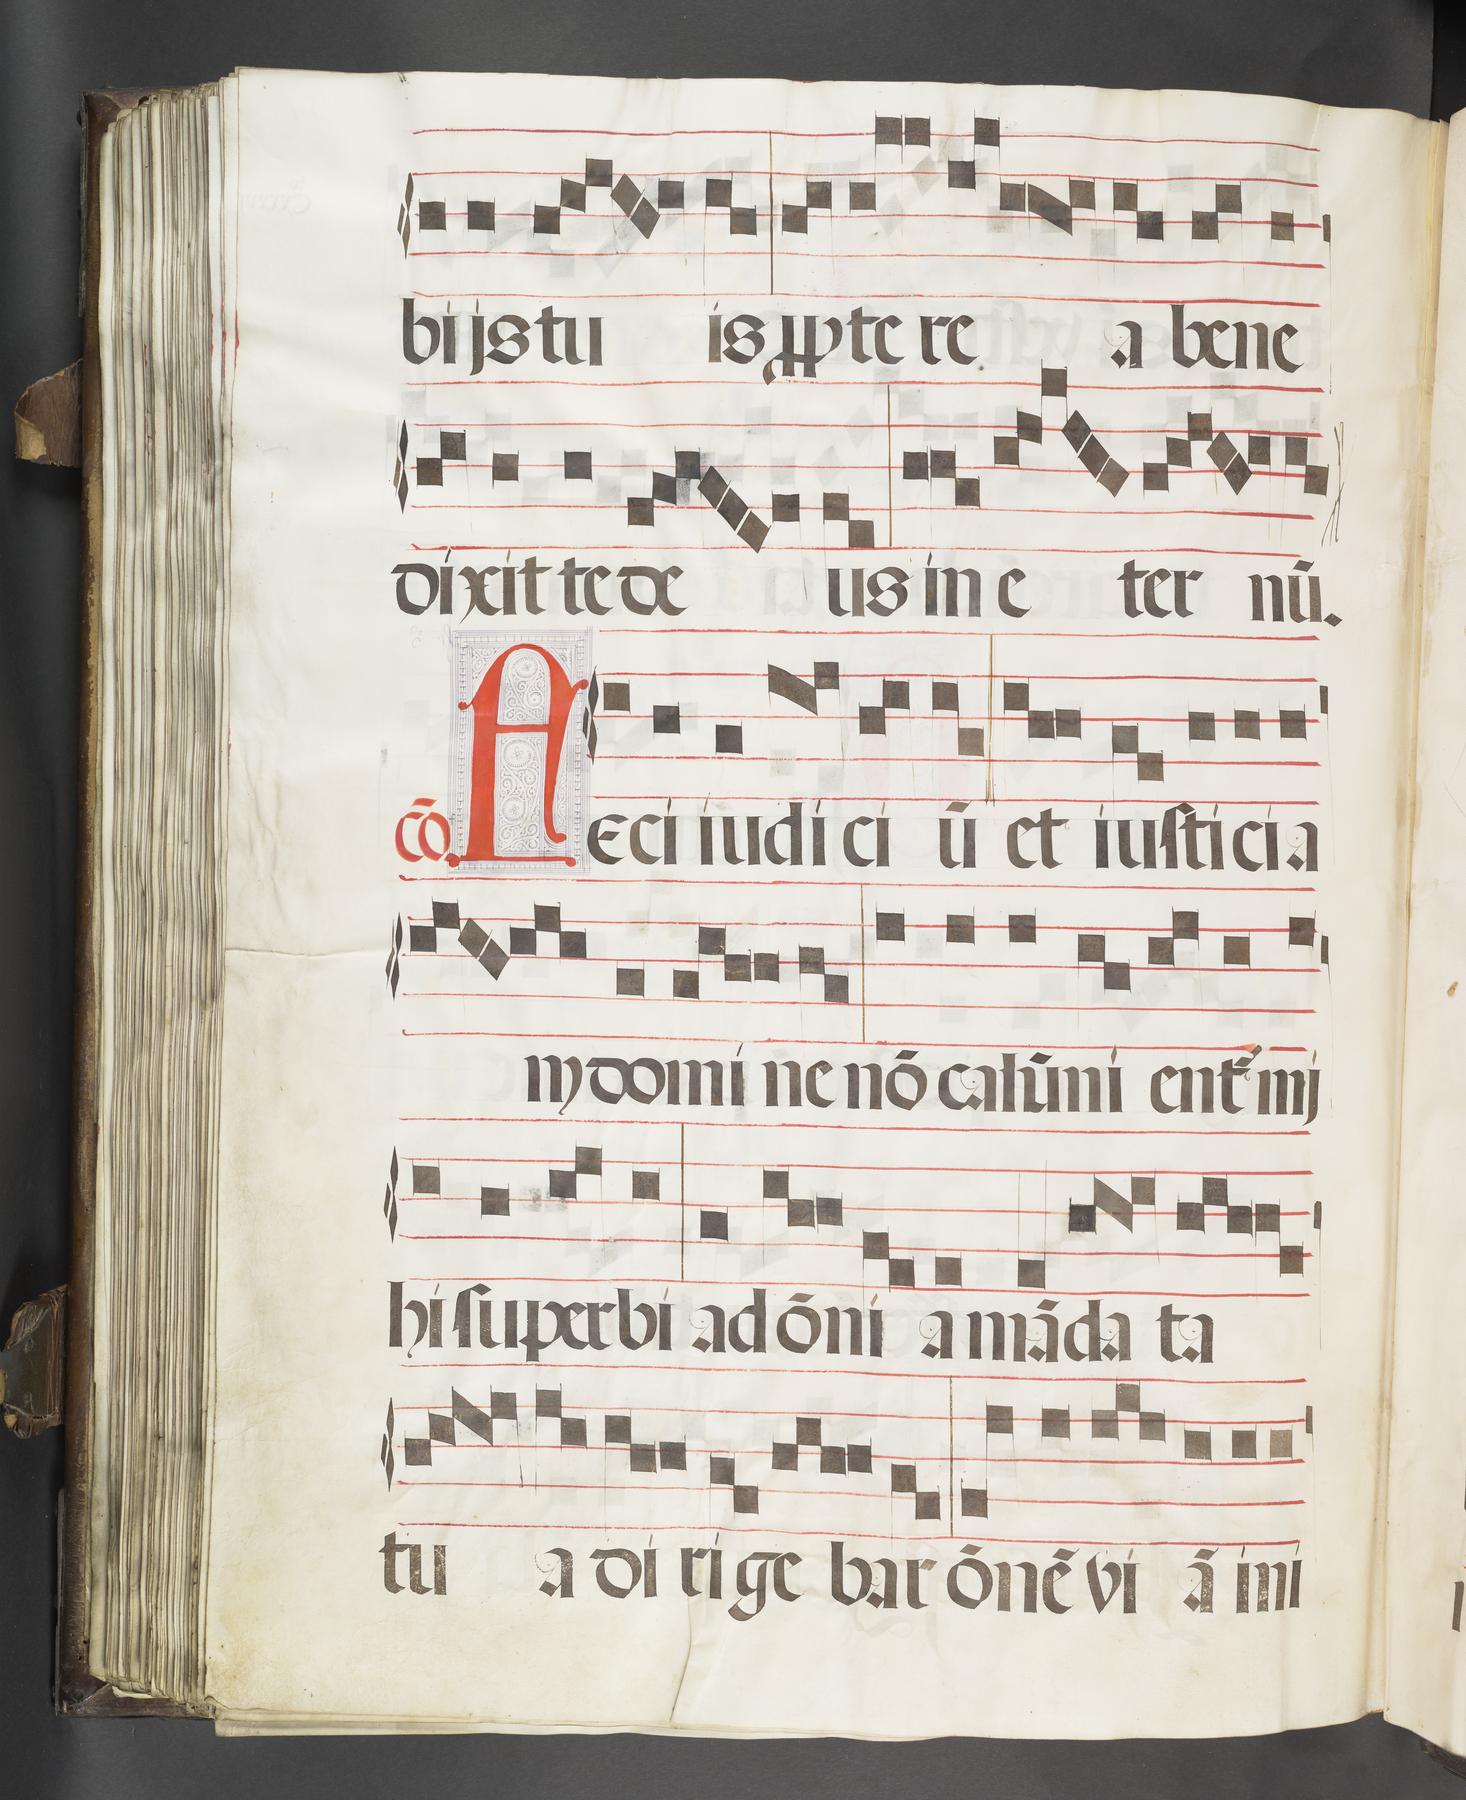 bijs tu is ꝓpte re a bene
dixit te de us in e ter nū.
cō. Feci iudi ci ū et iusticia
m domi ne nō calūni ent mi
hi superbi ad ōni a māda ta
tu a di ri ge bar ōnē vi ā ini